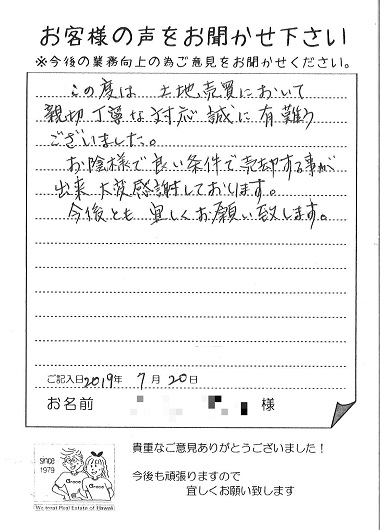 お客様の声をお聞かせ下さい
※今後の業務向上の為ご意見をお聞かせください。
この度は 土地売買において
親切丁寧な対応誠に有難う
ございました。
お陰様で良い条件で売却する事が
出来 大変感謝しております。
今後とも宜しくお願い致します。
ご記入日2019年 7月20日
お名前 様
since
1979
Grace
Grace
We treat Real Estate of Hawaii
貴重なご意見ありがとうございました！
今後も頑張りますので
宜しくお願い致します